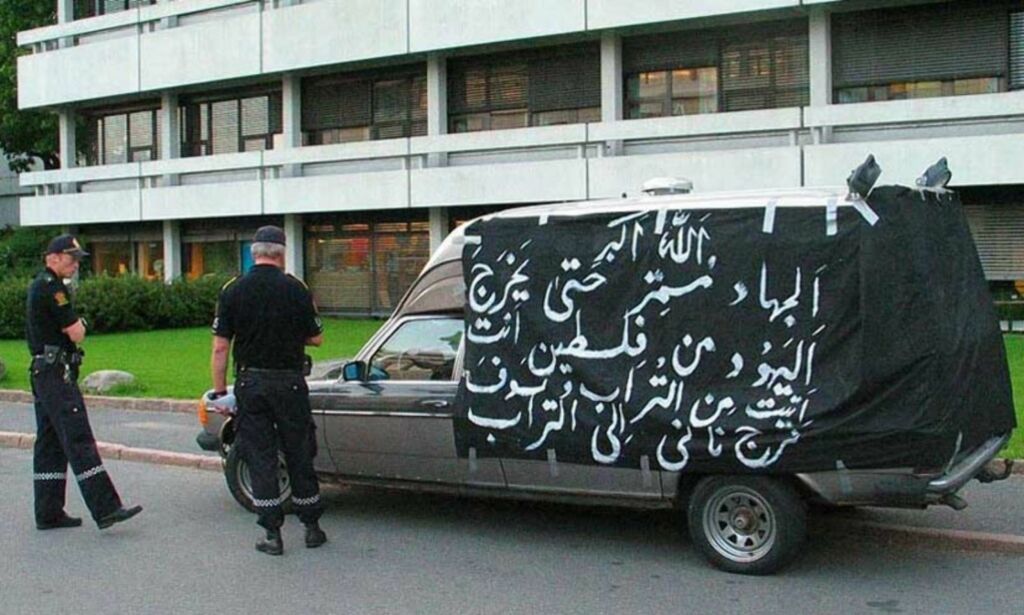 اللّٰه اَكبر
اَلجهاد مستمِّر حتى يَخرَجَ
اَليَهُود من فلسطين انت
اَنيت مِن التُراب فسَوفَ
ترج نانى اِلى التراب